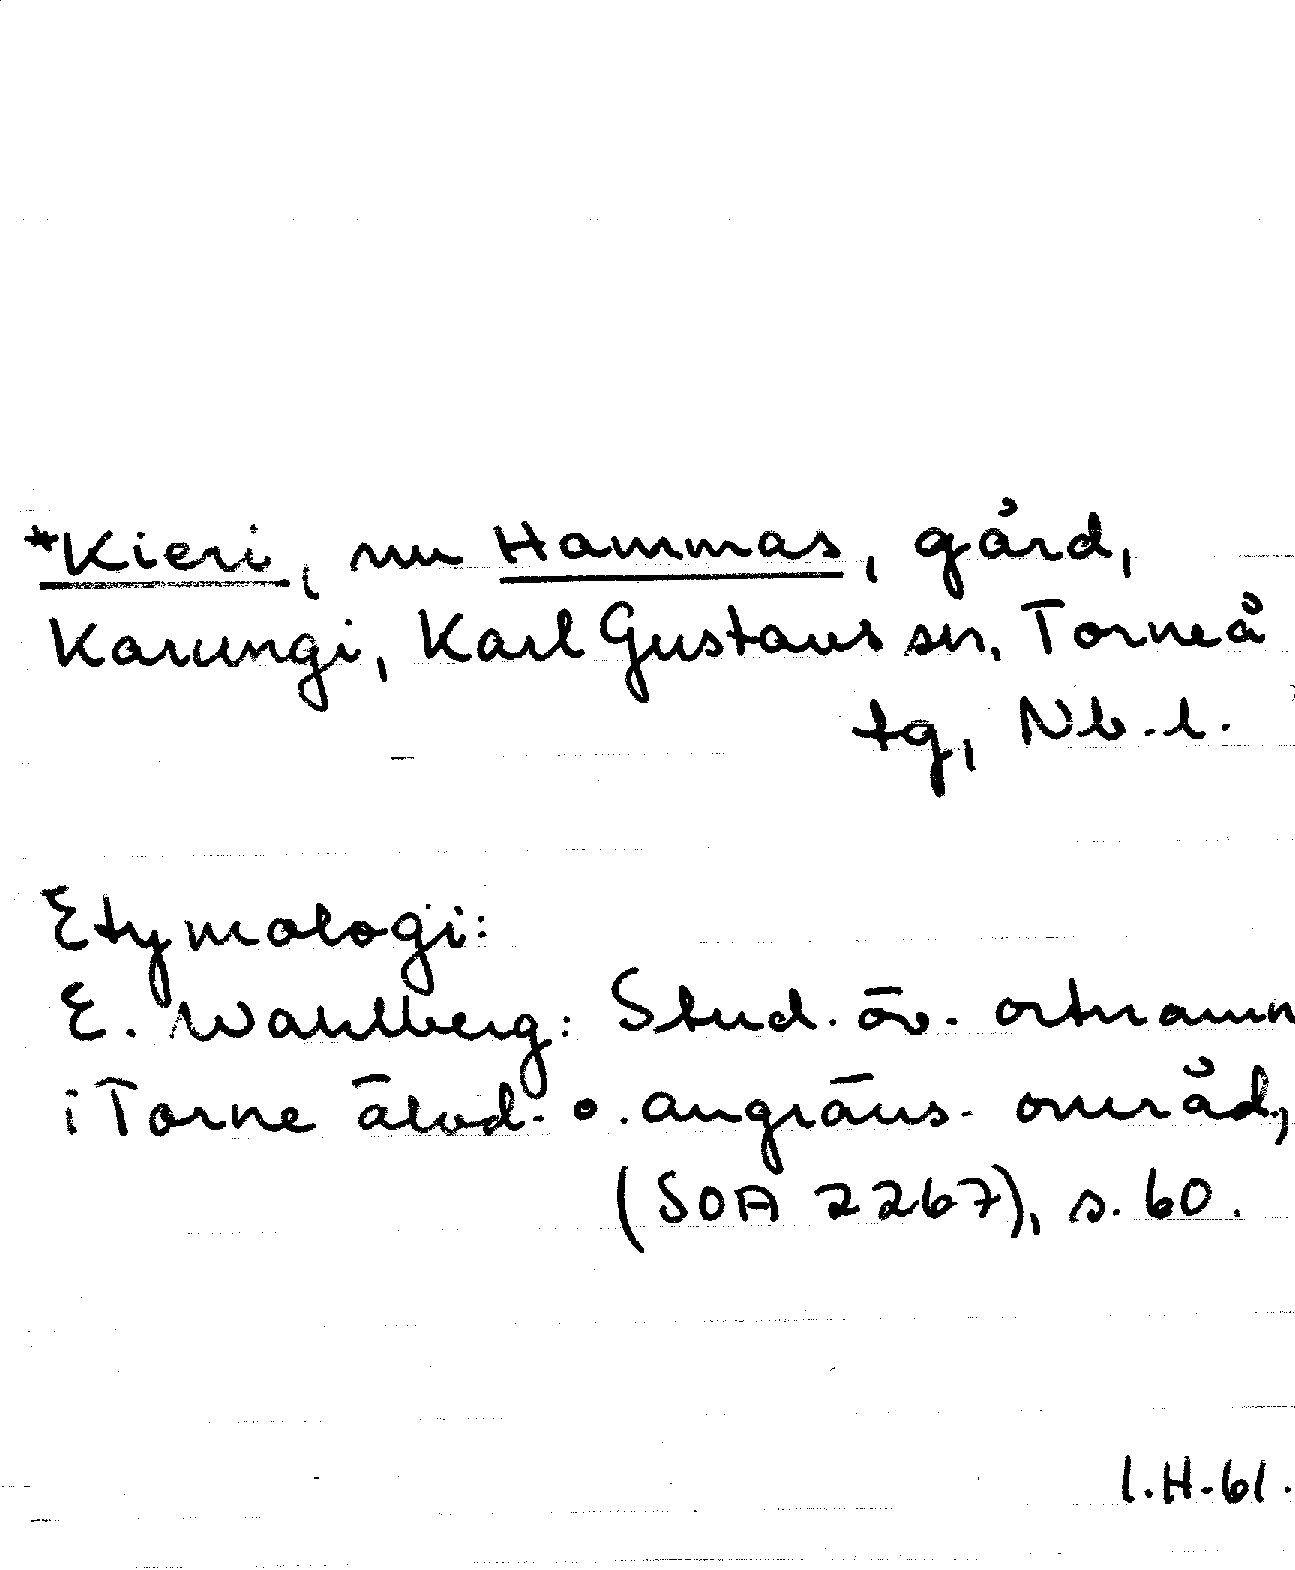 *Kieri, nu Hammas, gård,
Karungi, Karl Gustavs sn, Torneå
tg, Nb.l.
Etymologi:
E. Wahlberg: Stud. öv. ortnamn
i Torne älvd- o. angräns. områd,
(SOA 2267), s. 60.
I.H-61.